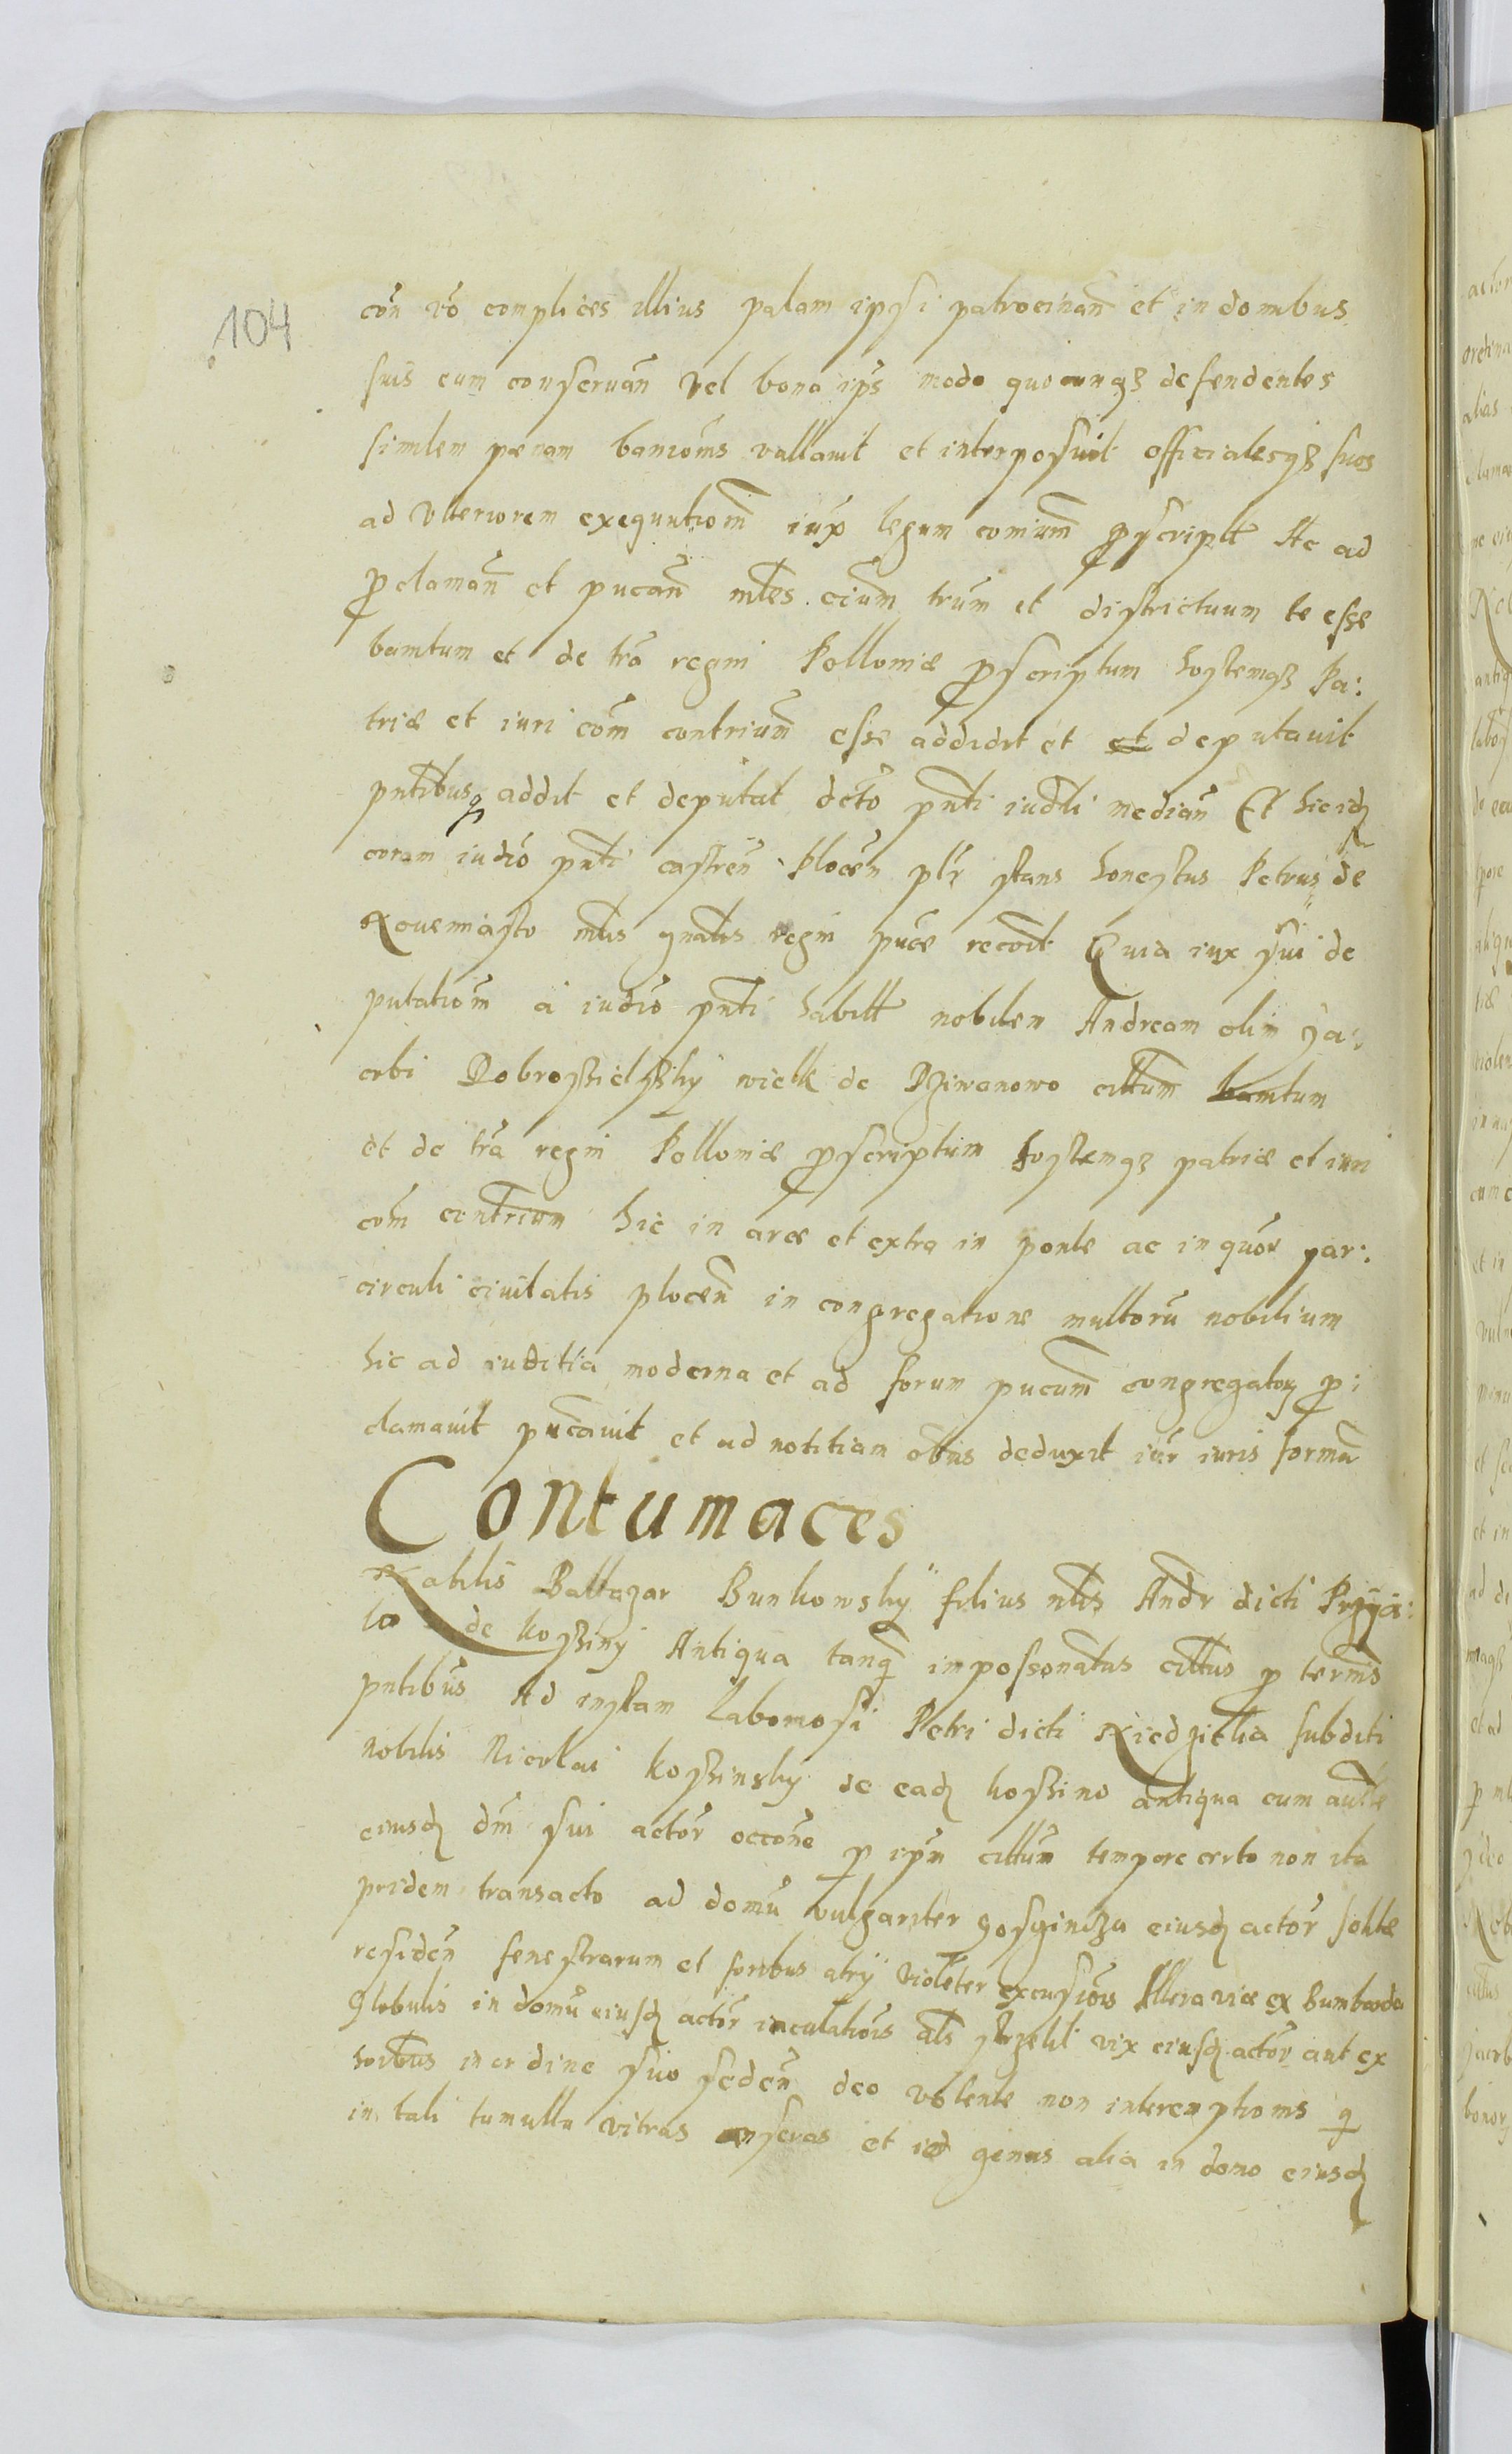 104
con vo complices illius palam ipsi patrocinan et in domibus
suis eum conseruan vel bona ips modo quocunqz defendentes
similem pœnam banioms vallauit et interposuit officialesqz suos
ad vlteriorem exequutiom iux legum comium proscript Ac ad
proclaman et pucan mltes cium trum et districtuum te esse
banitum et de tra regni Polloniæ proscriptum hostemqz Pa:
triæ et iuri com contrium esse addidit et et deputauit
pntibusq addit et deputat dcto pnti iudli median Et hic idz
coram iudio pnti castren Plocen plr stans honestus Petrus de
Nouemiasto mlis gnalis regni puce recodt Quia iux sui de
putatiom a iudio pnti habitt nobilem Andream olim Ja:
cobi Dobrossielsky wielk de Dziwanowo cittum banitum
et de tra regni Polloniæ proscriptum hostemqz patriæ et iuri
com contrium hic in arce et extra in ponte ac in quor par:
circuli ciuitatis plocen in congregatione multoru nobilium
hic ad iuditia moderna et ad forum pucum congregatorz pro:
clamauit pucauit et ad notitiam obus deduxit iur iuris forma
Contumaces
Nabilis Baltazar Bunkowsky filius nlis Andr dicti Przya:
de Kossiny Antiqua tanq impossonatus cittus p termis
pntibus Ad instam Laboriosi Petri dicti Niedzielia subditi
nobilis Nicolai Kossinsky de eadz Kossino antiqua cum autte
eiusdz dni sui actor occone p ipm cittum tempore certo non ita
pridem transacto ad domu vulgariter gosgindzu eiusdz actor solitæ
residen fenestrarum et foribus atrÿ violeter excussiois ex Bumbarda
Globulis in domu eiusdz actor iaculatiois als strzelil vix eiusdz actor aut ex
horibus in ordine suo seden deo volente non interemptionis q
in tali tumultu vitras anseras et id genus alia in domo eiusdz